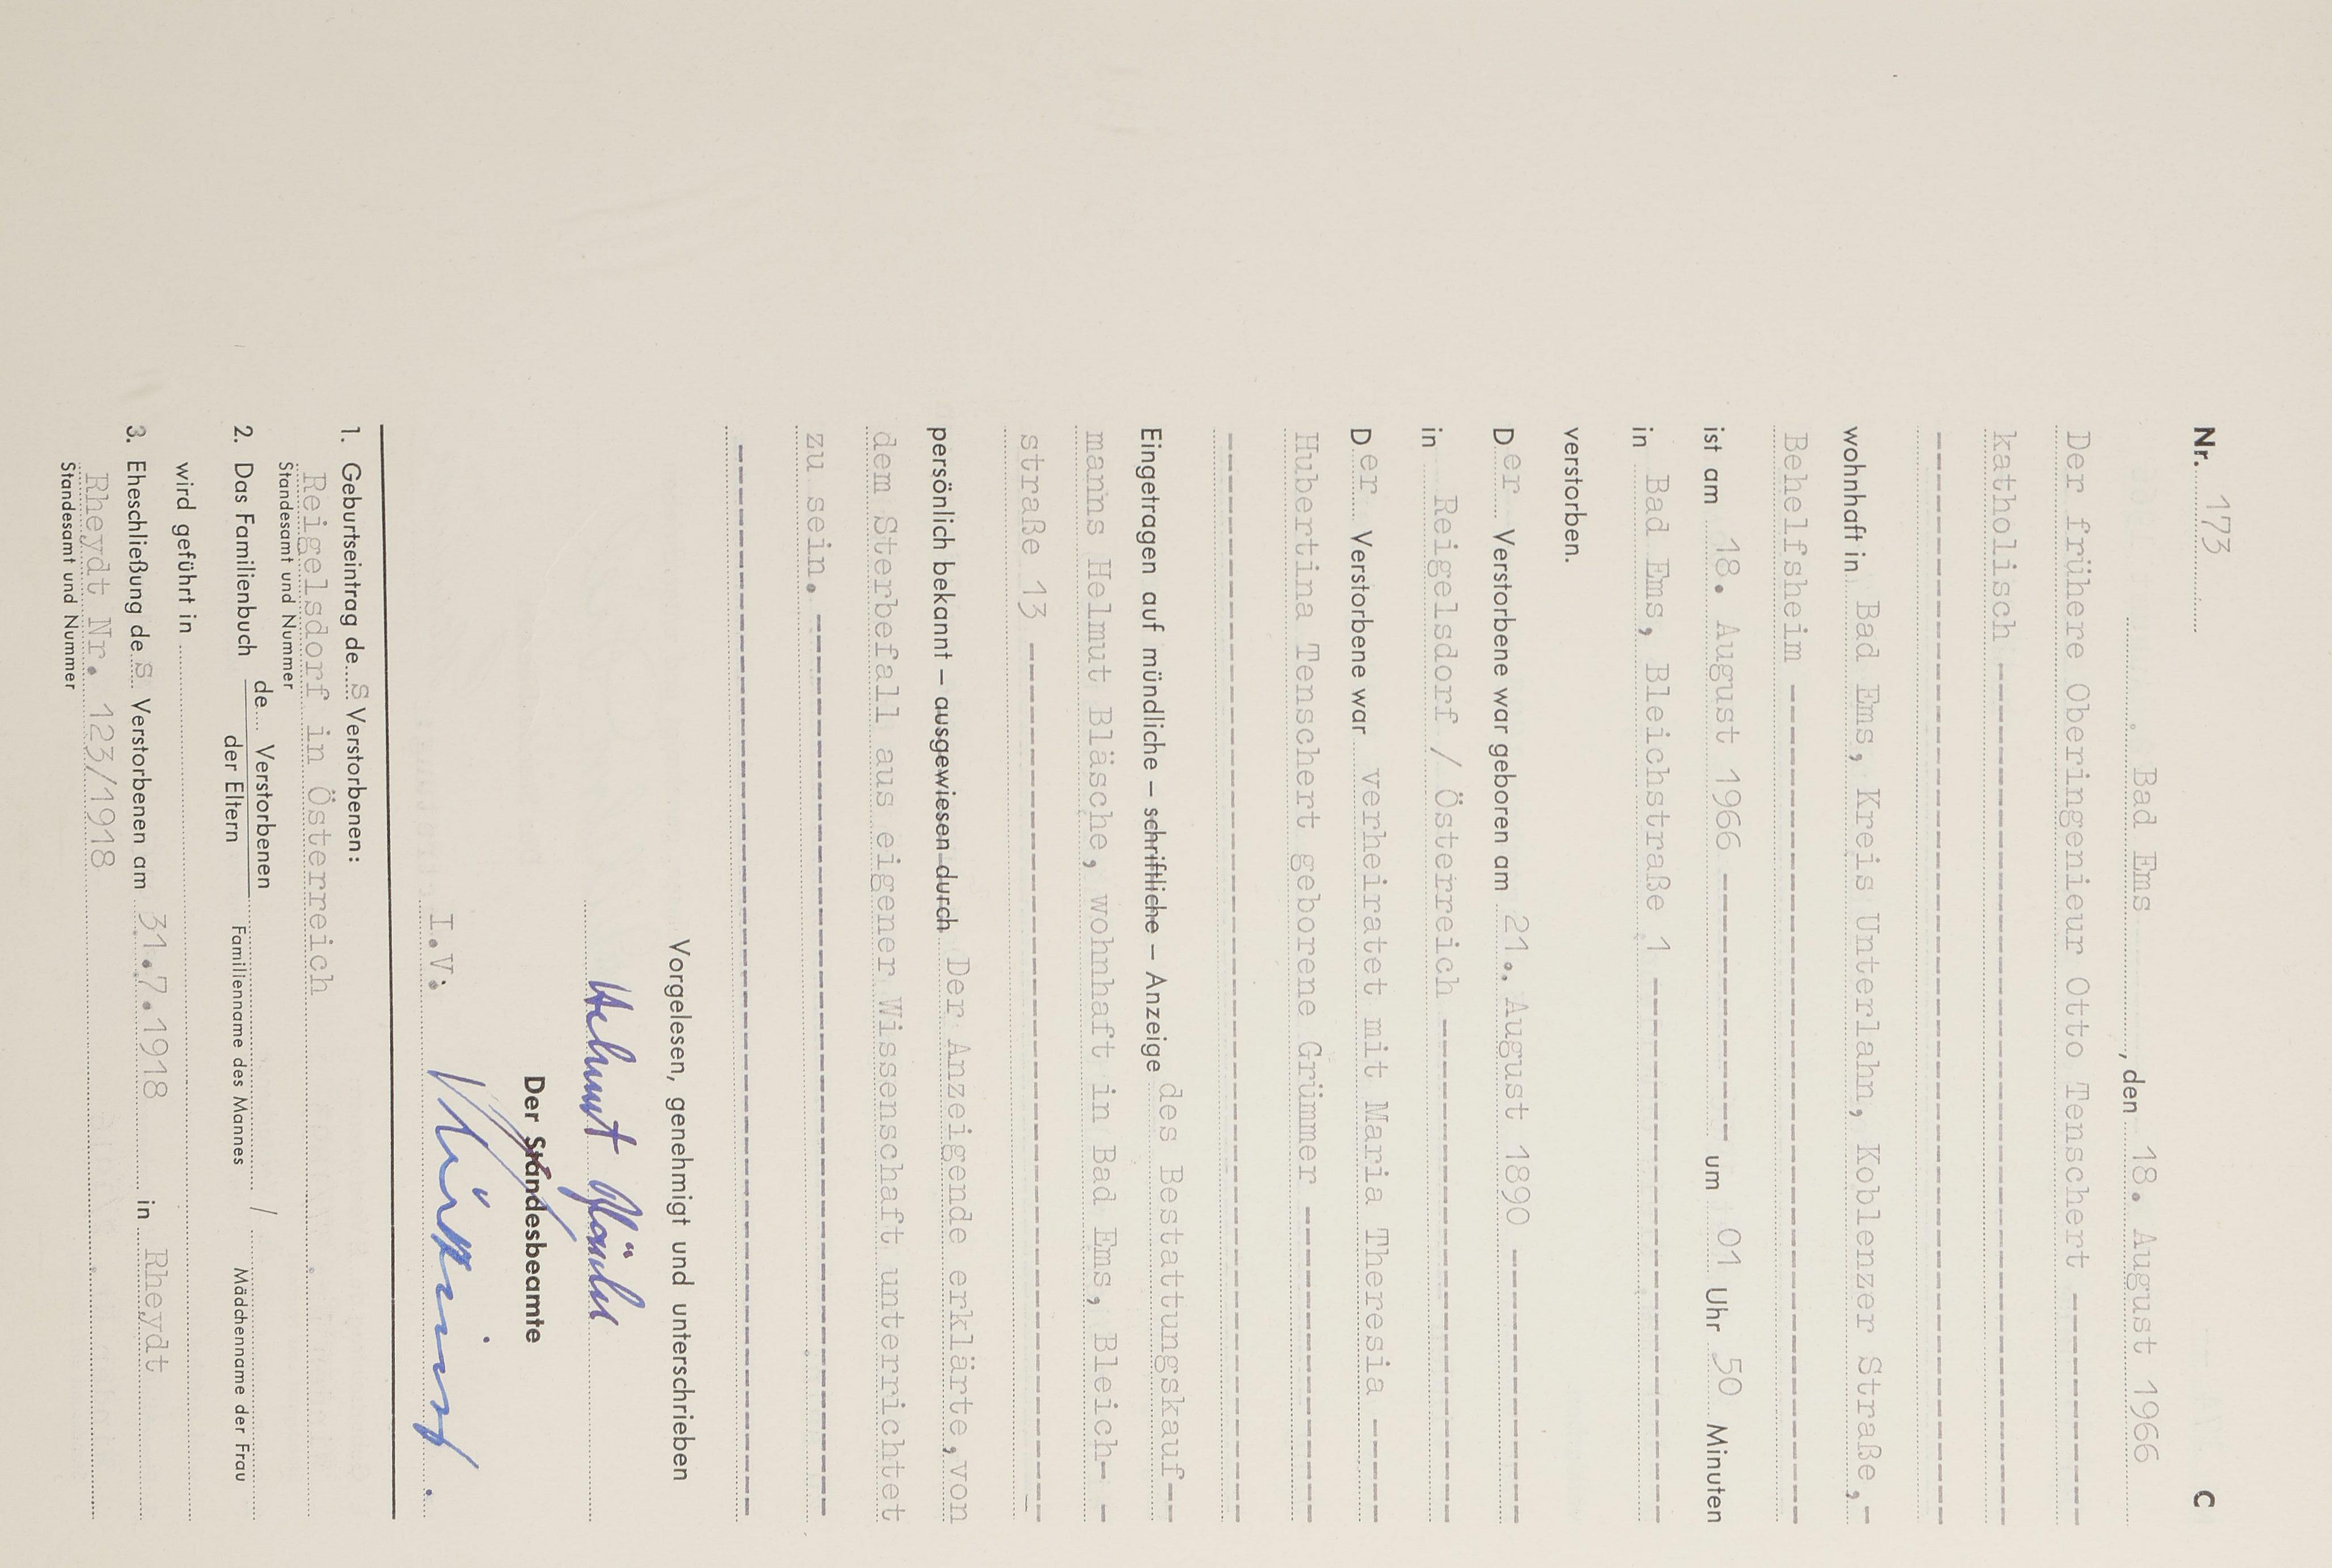 Nr. 173 C
Bad Ems, den 18. August 1966
Der frühere Oberingenieur Otto Tenschert ----------
katholisch --------------------
--------------------
wohnhaft in Bad Ems, Kreis Unterlahn, Koblenzer Straße,-
Behelfsheim --------------------
ist am 18. August 1966 ---------- um 01 Uhr 50 Minuten
in Bad Ems, Bleichstraße 1 --------------------
verstorben.
Der Verstorbene war geboren am 21.. August 1890 ----------
in Reigelsdorf / Österreich --------------------
Der Verstorbene war verheiratet mit Maria Theresia -----
Hubertina Tenschert geborene Grümmer ----------
--------------------
Eingetragen auf mündliche – schriftliche – Anzeige des Bestattungskauf--
manns Helmut Bläsche, wohnhaft in Bad Ems, Bleich- -
straße 13 --------------------
persönlich bekannt – ausgewiesen durch Der Anzeigende erklärte,von
dem Sterbefall aus eigener Wissenschaft unterrichtet
zu sein. --------------------
--------------------
Vorgelesen, genehmigt und unterschrieben
Helmut Bläsche
Der Standesbeamte
I.V.
1. Geburtseintrag des Verstorbenen:
Reigelsdorf in Österreich
Standesamt und Nummer
2. Das Familienbuch de Verstorbenen / der Eltern
Familienname des Mannes Mädchenname der Frau
wird geführt in
3. Eheschließung des Verstorbenen am 31.7.1918 in Rheydt
Rheydt Nr. 123/1918
Standesamt und Nummer